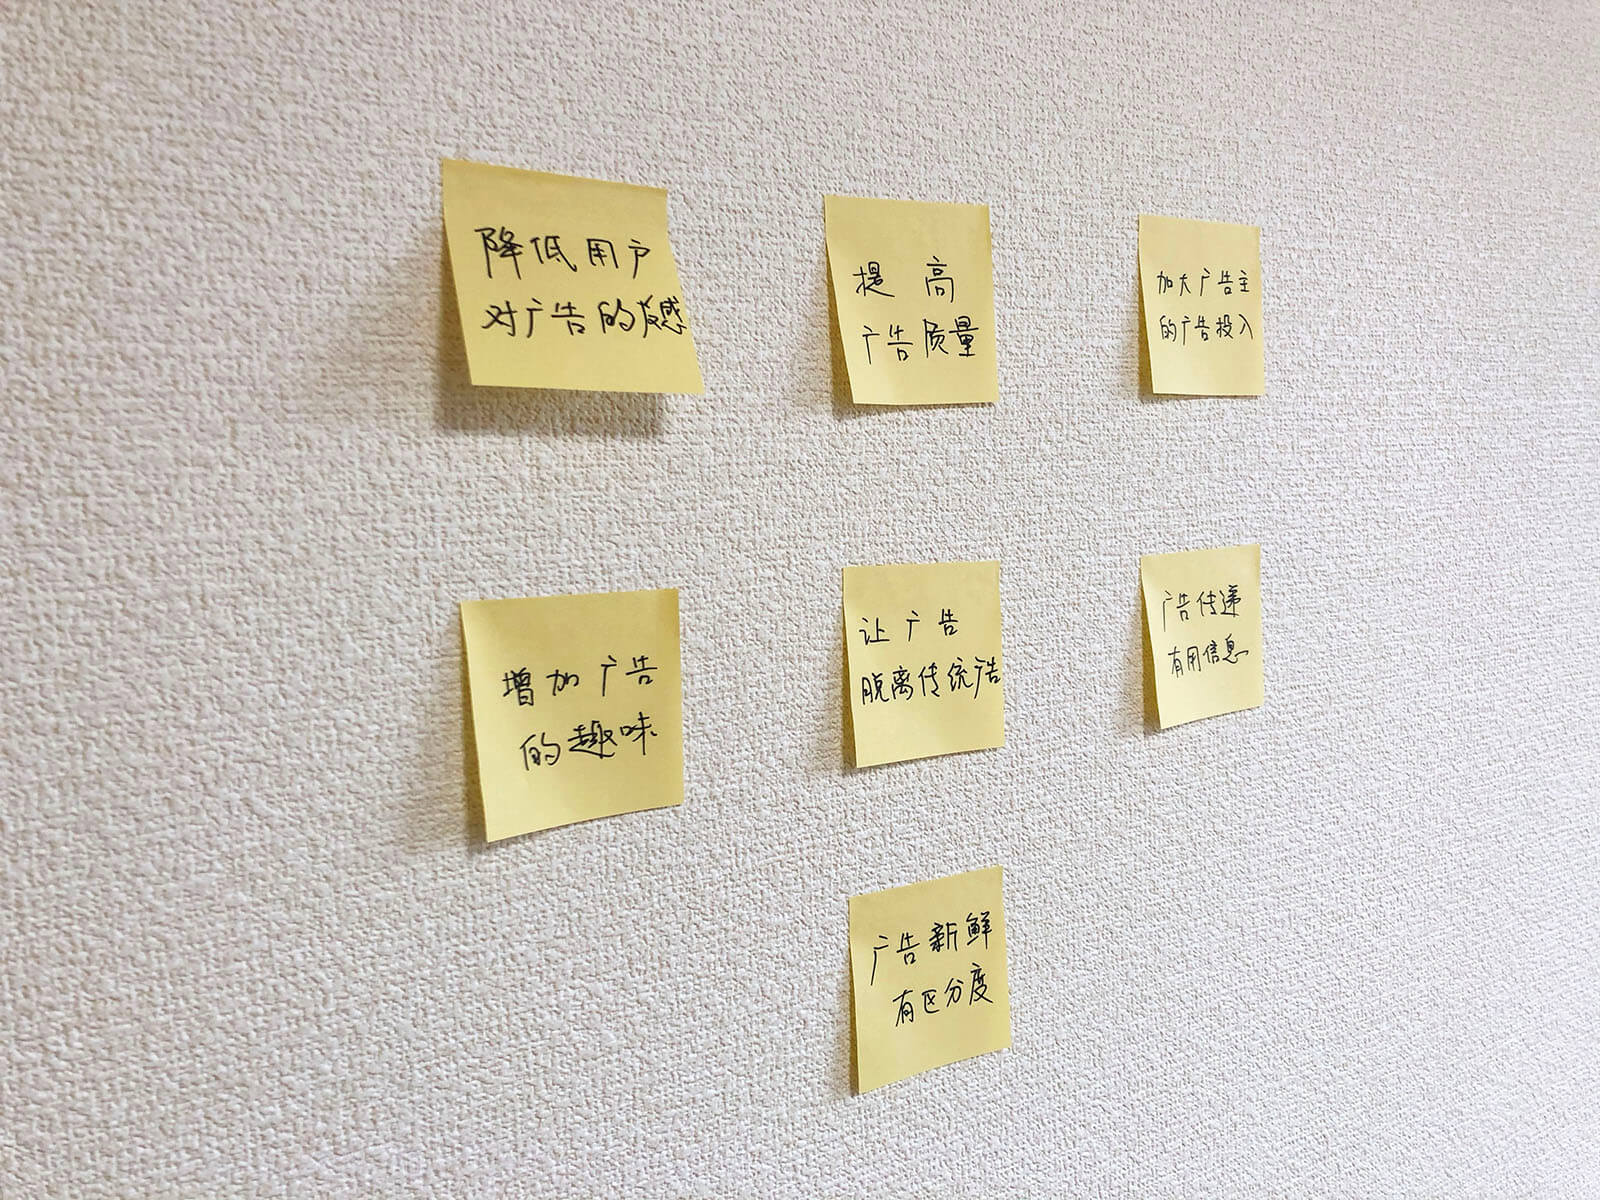 降低用户
对广告的反感
提高
广告质量
加大广告主
的广告投入
增加广告
的趣味
让广告
脱离传统广告
广告传递
有用信息
广告新鲜
有区分度